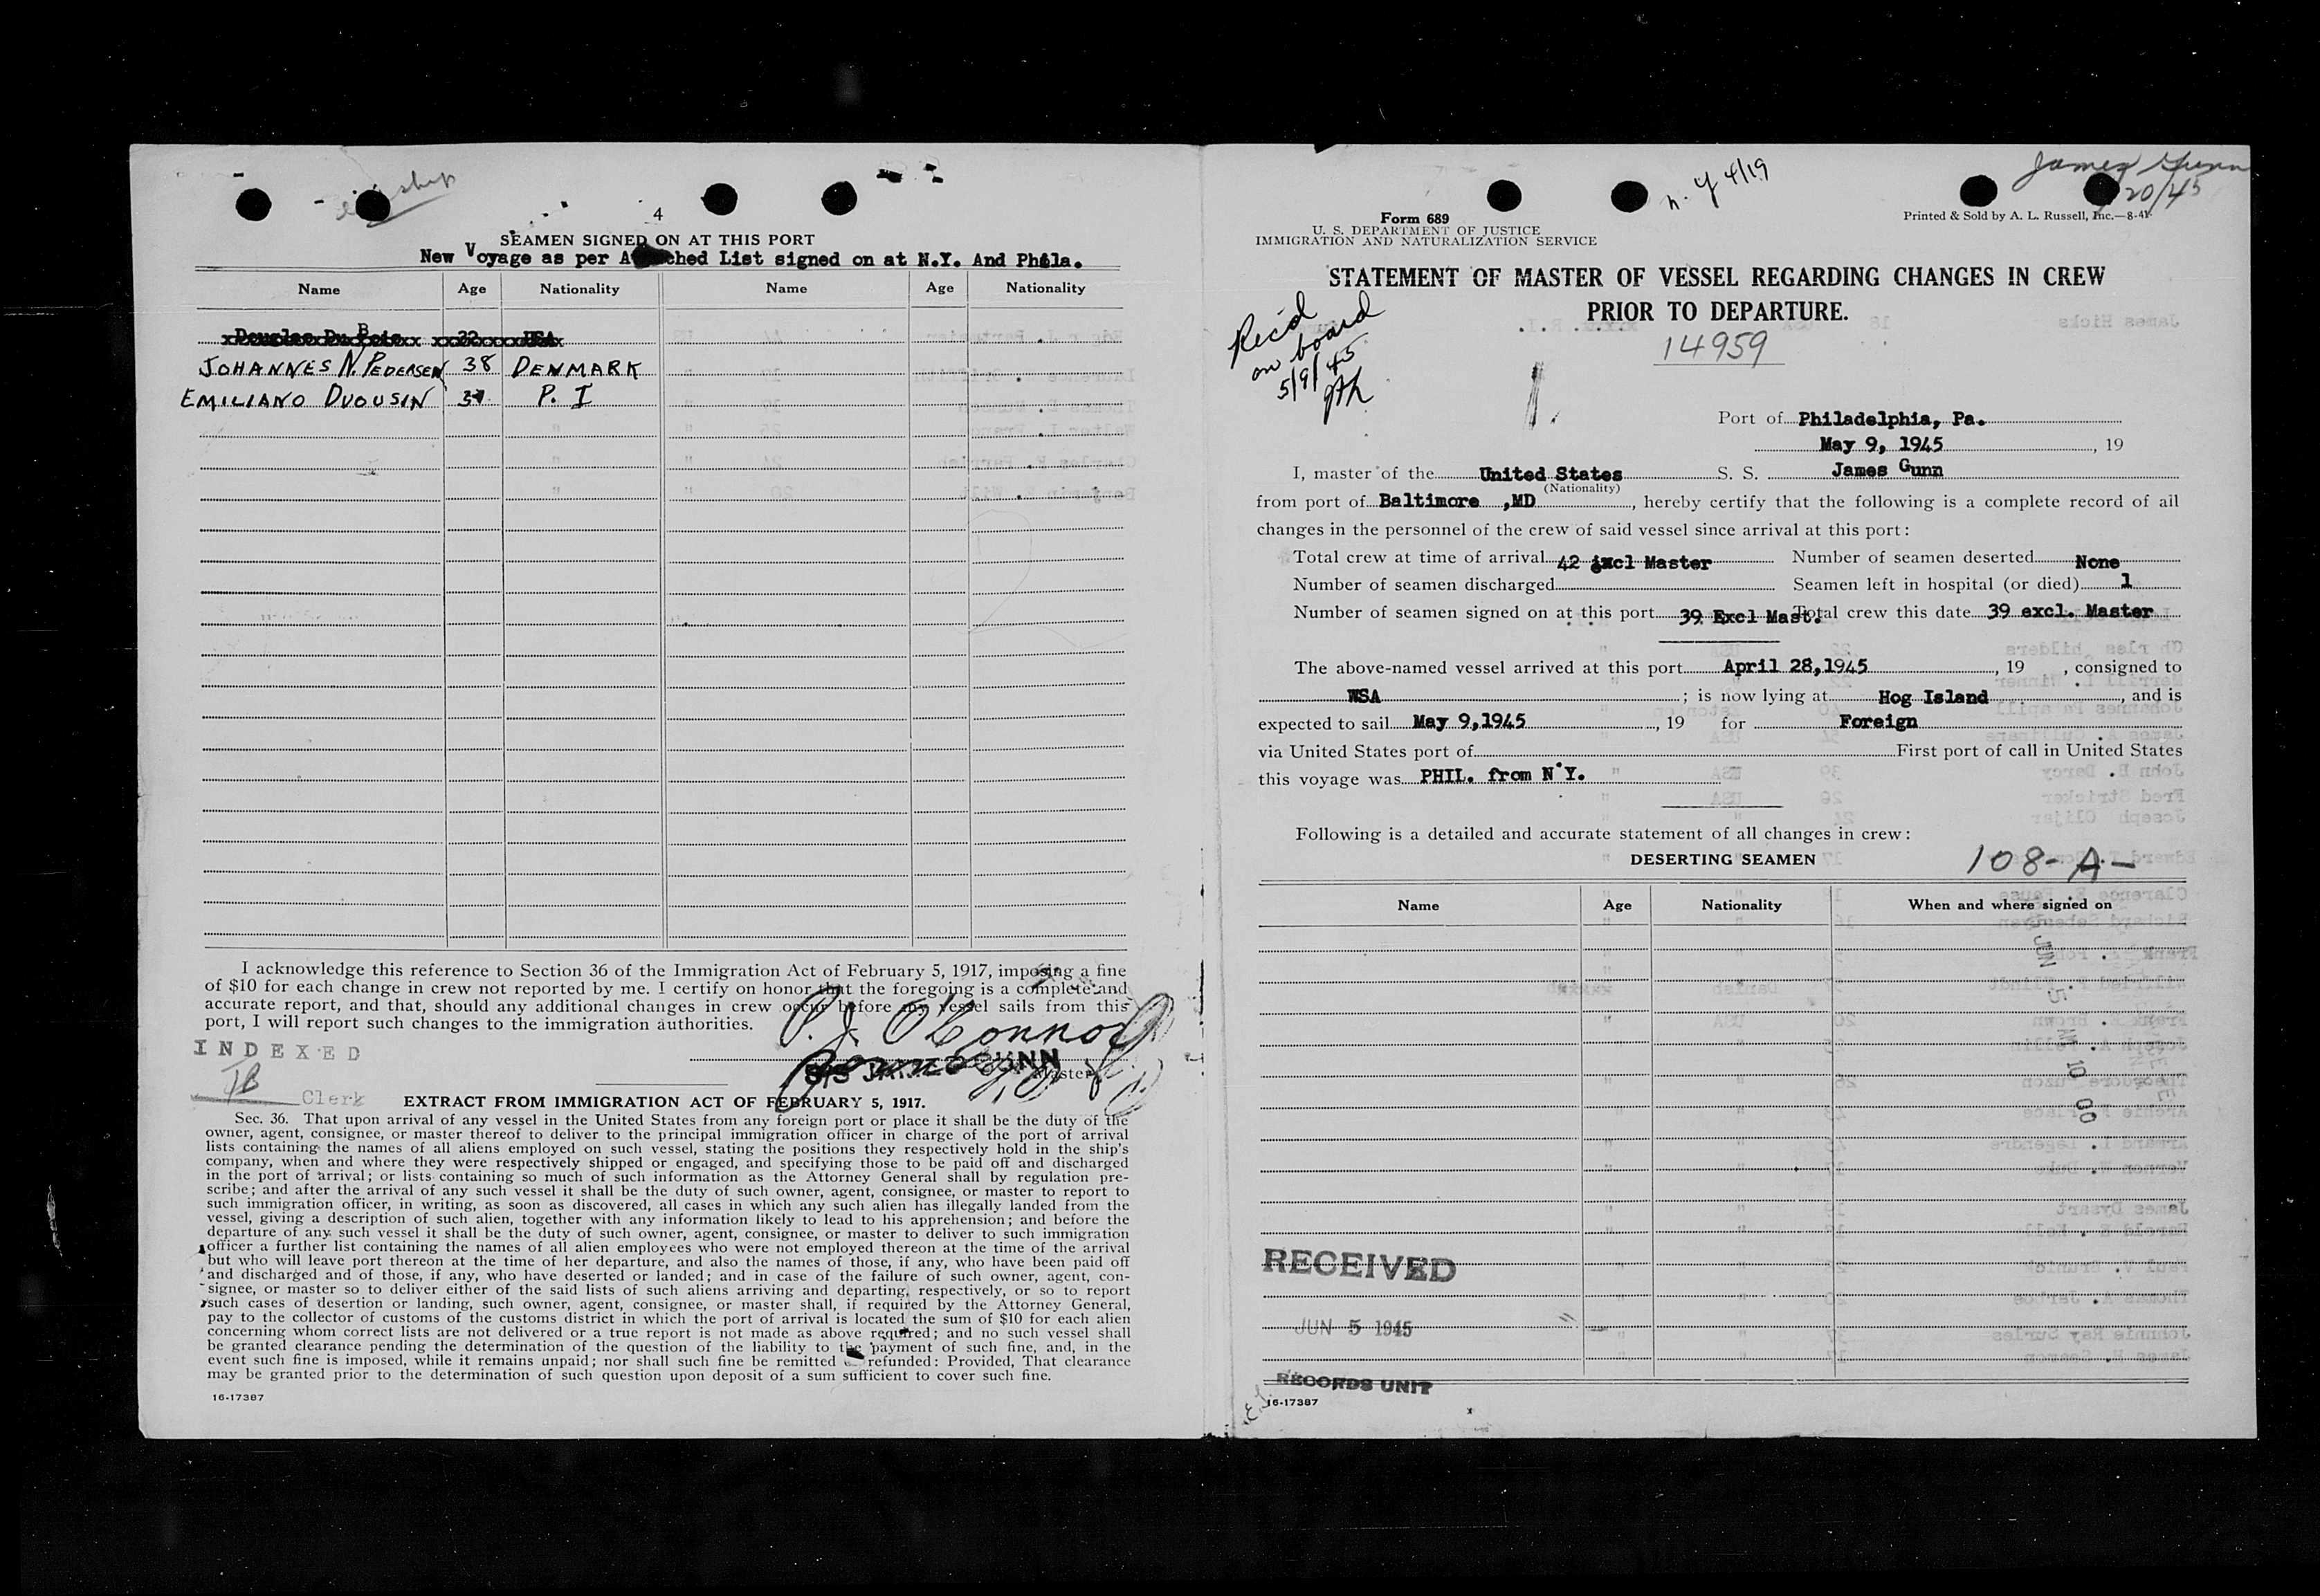 ship
4
SEAMEN SIGNED ON AT THIS PORT
New Voyage as per A ched List signed on at N.Y. And Phila.
Name Age Nationality Name Age Nationality
Douglas Du Bois 22 USA
JOHANNES N. PEDERSEN 38 DENMARK
EMILIANO DUOUSIN P. I
I acknowledge this reference to Section 36 of the Immigration Act of February 5, 1917, imposing a fine
of $10 for each change in crew not reported by me. I certify on honor that the foregoing is a complete and
accurate report, and that, should any additional changes in crew occur before my vessel sails from this
port, I will report such changes to the immigration authorities.
P. J. O'Connor
INDEXED
S/S JAMES GUNN
Master
Clerk
EXTRACT FROM IMMIGRATION ACT OF FEBRUARY 5, 1917.
Sec. 36. That upon arrival of any vessel in the United States from any foreign port or place it shall be the duty of the
owner, agent, consignee, or master thereof to deliver to the principal immigration officer in charge of the port of arrival
lists containing the names of all aliens employed on such vessel, stating the positions they respectively hold in the ship's
company, when and where they were respectively shipped or engaged, and specifying those to be paid off and discharged
in the port of arrival; or lists containing so much of such information as the Attorney General shall by regulation pre-
scribe; and after the arrival of any such vessel it shall be the duty of such owner, agent, consignee, or master to report to
such immigration officer, in writing, as soon as discovered, all cases in which any such alien has illegally landed from the
vessel, giving a description of such alien, together with any information likely to lead to his apprehension; and before the
departure of any such vessel it shall be the duty of such owner, agent, consignee, or master to deliver to such immigration
officer a further list containing the names of all alien employees who were not employed thereon at the time of the arrival
but who will leave port thereon at the time of her departure, and also the names of those, if any, who have been paid off
and discharged and of those, if any, who have deserted or landed; and in case of the failure of such owner, agent, con-
signee, or master so to deliver either of the said lists of such aliens arriving and departing, respectively, or so to report
such cases of desertion or landing, such owner, agent, consignee, or master shall, if required by the Attorney General,
pay to the collector of customs of the customs district in which the port of arrival is located the sum of $10 for each alien
concerning whom correct lists are not delivered or a true report is not made as above required; and no such vessel shall
be granted clearance pending the determination of the question of the liability to the payment of such fine, and, in the
event such fine is imposed, while it remains unpaid; nor shall such fine be remitted refunded: Provided, That clearance
may be granted prior to the determination of such question upon deposit of a sum sufficient to cover such fine.
16-17387
James Gunn
20/45
4/19
Form 689
U. S. DEPARTMENT OF JUSTICE
IMMIGRATION AND NATURALIZATION SERVICE
Printed & Sold by A. L. Russell, Inc.—8-41
STATEMENT OF MASTER OF VESSEL REGARDING CHANGES IN CREW
PRIOR TO DEPARTURE.
14959
Rec'd
on board
5/9/45
Port of Philadelphia, Pa.
May 9, 1945, 19
I, master of the United States S. S. James Gunn
(Nationality)
from port of Baltimore ,MD, hereby certify that the following is a complete record of all
changes in the personnel of the crew of said vessel since arrival at this port:
Total crew at time of arrival 42 excl Master Number of seamen deserted None
Number of seamen discharged Seamen left in hospital (or died) 1
Number of seamen signed on at this port 39 Excl Mast. Total crew this date 39 excl. Master
The above-named vessel arrived at this port April 28,1945, 19 , consigned to
WSA; is now lying at Hog Island, and is
expected to sail May 9,1945, 19 for Foreign
via United States port of First port of call in United States
this voyage was PHIL. from N.Y.
Following is a detailed and accurate statement of all changes in crew:
DESERTING SEAMEN
108-A-
Name Age Nationality When and where signed on
JUN 5 AM 10 00
RECEIVED
JUN 5 1945
RECORDS UNIT
16-17387